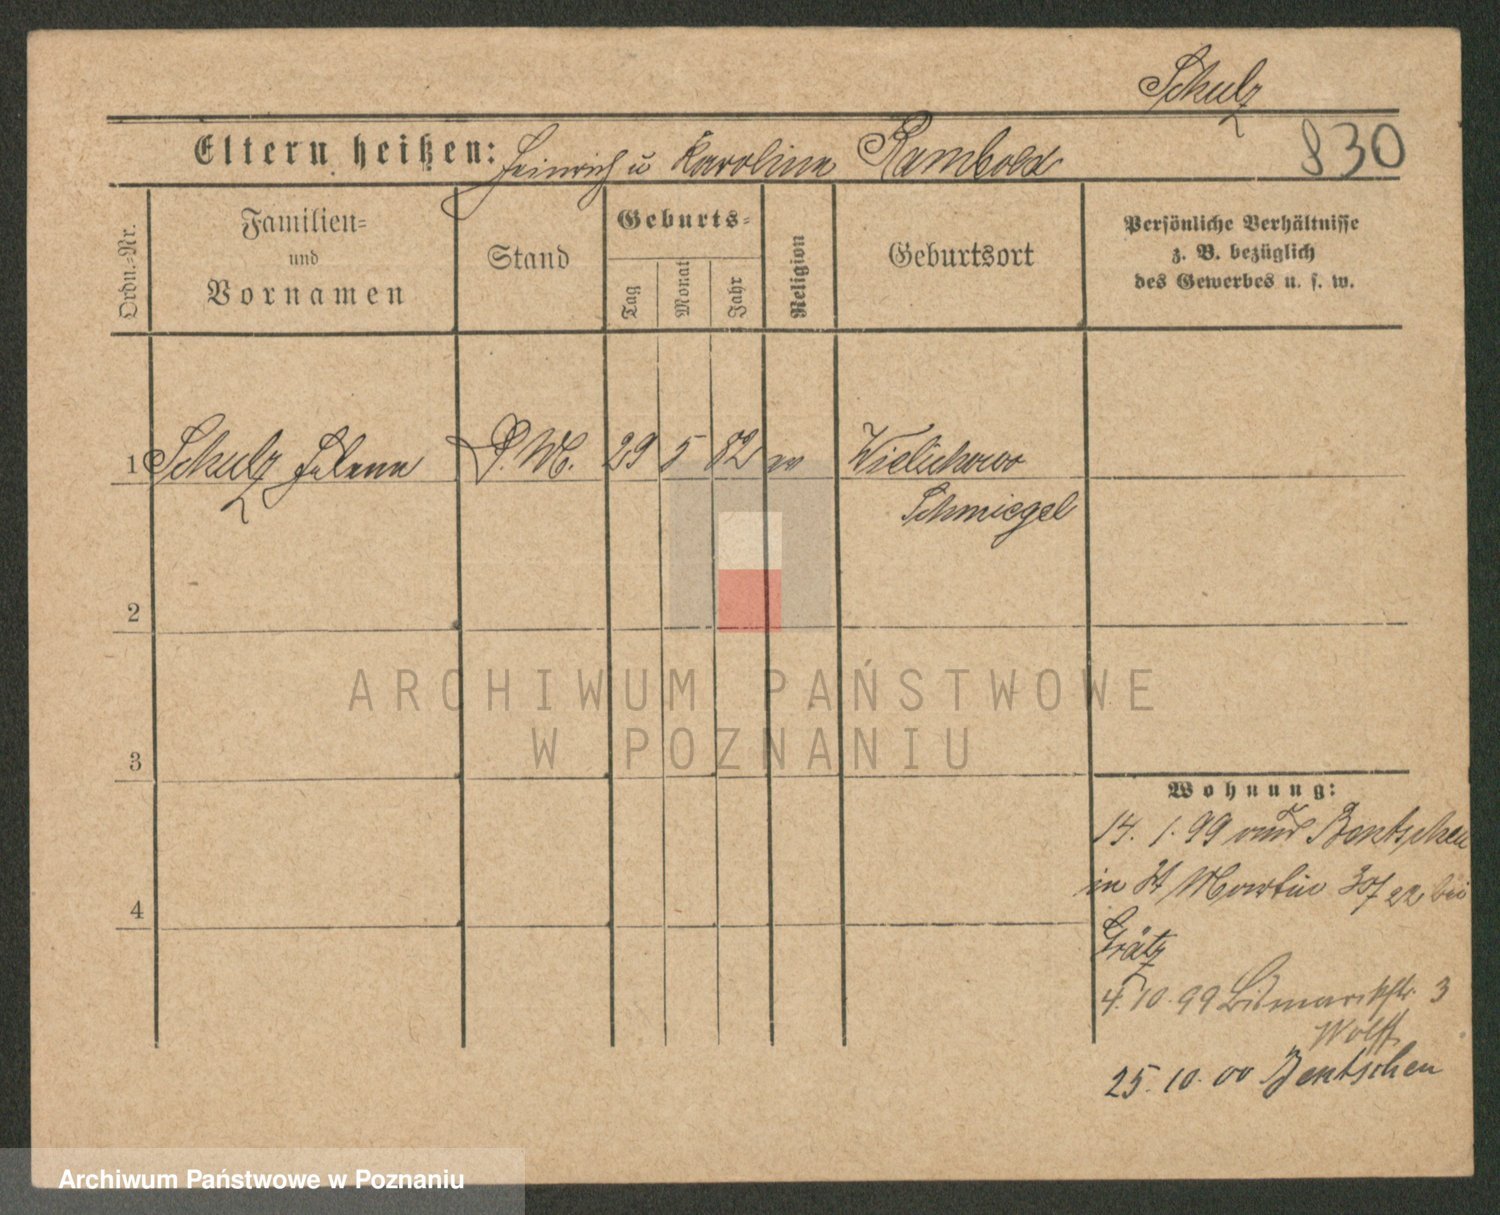 Schulz
Eltern heißen: Heinrich u Karolina Rambold
830
Ordn.-Nr.
Familien-
und
Vornamen
Stand
Geburts-
Tag
Monat
Jahr
Religion
Geburtsort
Persönliche Verhältnisse
z. B. bezüglich
des Gewerbes u. s. w.
1 Schulz Helene D. M. 29 5 82 Wielichowo
Schmiegel
2
ARCHIWUM PAŃSTWOWE
W POZNANIU
3
Wohnung:
14. 1. 99 Bentschen
in St Martin 22 bei
4
Grätz
4. 10. 99 Bismarckstr 3
Wolff
25. 10. 00 Bentschen
Archiwum Państwowe w Poznaniu